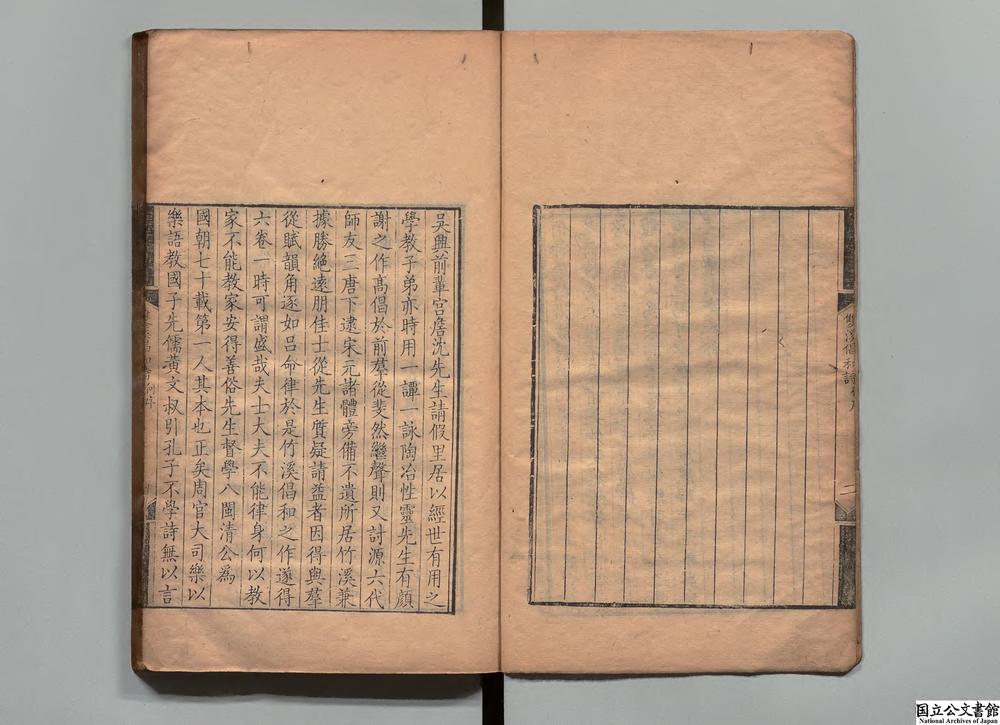 雙溪倡和詩
吳興前輩宮詹沈先生請假里居以經世有用之
學敎子弟亦時用一譚一詠陶冶性靈先生有顔
謝之作高倡於前羣從斐然繼聲則又討源六代
師友三唐下逮宋元諸體旁備不遺所居竹溪兼
據勝絶遠朋佳士從先生質疑請益者因得與羣
從賦韻角逐如呂命律於是竹溪倡和之作遂得
六卷一時可謂盛哉夫士大夫不能律身何以教
家不能教家安得善俗先生督學八閩清公爲
國朝七十載第一人其本也正矣周官大司樂以
樂語教國子先儒黃文叔引孔子不學詩無以言
国立公文書館
National Archives of Japan